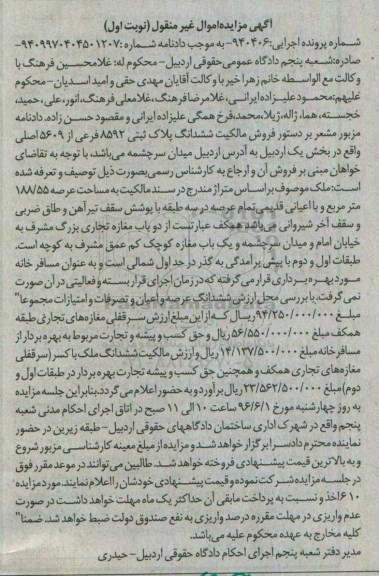 آگهی مزایده اموال غیر منقول (نوبت اول)
شماره پرونده اجرایی: ۹۴۰۴۰۶- به موجب دادنامه شماره: ۹۴۰۹۹۷۰۴۰۴۵۰۱۲۰۷-
صادره: شعبه پنجم دادگاه عمومی حقوقی اردبیل- محکوم له: غلامحسین فرهنگ با
وکالت مع الواسطه خانم زهرا خیر با وکالت آقایان مهدی حقی و امید اسدیان- محکوم
علیهم: محمود علیزاده ایرانی، غلامرضا فرهنگ، غلامعلی فرهنگ، انور، علی، حمید،
خجسته، هما، ژاله، ژیلا، محمد، فرخ همگی علیزاده ایرانی و مقصود حسن زاده. دادنامه
مزبور مشعر بر دستور فروش مالکیت ششدانگ پلاک ثبتی ۸۵۹۲ فرعی از ۵۶۰۹ اصلی
واقع در بخش یک اردبیل به آدرس اردبیل میدان سرچشمه می‌باشد، با توجه به تقاضای
خواهان مبنی بر فروش آن و ارجاع به کارشناس رسمی بصورت ذیل توصیف و تعرفه شده
است: ملک موصوف بر اساس متراژ مندرج در سند مالکیت به مساحت عرصه ۱۸۸/۵۵
متر مربع و با اعیانی قدیمی تمام عرصه در سه طبقه با پوشش سقف تیرآهن و طاق ضربی
و سقف آخر شیروانی می‌باشد. همکف عبارتست از دو باب مغازه تجاری بزرگ مشرف به
خیابان امام و میدان سرچشمه و یک باب مغازه کوچک کم عمق مشرف به کوچه است.
طبقات اول و دوم با پیش برآمدگی به گذر در حد اول شمالی است و به عنوان مسافر خانه
مورد بهره برداری قرار می‌گرفته که در زمان اجرای قرار بسته و فعالیتی در آن صورت
نمی‌گرفت. با بررسی محل ارزش ششدانگ عرصه و اعیان و تصرفات و امتیازات مجموعا"
مبلغ ۹۴/۲۵۰/۰۰۰/۰۰۰ ریال که از این مبلغ ارزش سرقفلی مغازه‌های تجارتی طبقه
همکف مبلغ ۵۶/۵۵۰/۰۰۰/۰۰۰ ریال و حق کسب و پیشه و تجارت مربوط به بهره بردار از
مسافر خانه مبلغ ۱۴/۱۳۷/۵۰۰/۰۰۰ ریال و ارزش مالکیت ششدانگ ملک با کسر (سرقفلی
مغازه‌های تجاری همکف و همچنین حق کسب و پیشه تجارت بهره بردار در طبقات اول و
دوم) مبلغ ۲۳/۵۶۲/۵۰۰/۰۰۰ ریال برآورد و به حضور اعلام می‌گردد. بنابراین جلسه مزایده
به روز چهارشنبه مورخ ۹۶/۶/۱ ساعت ۱۰ الی ۱۱ صبح در اتاق اجرای احکام مدنی شعبه
پنجم واقع در شهرک اداری ساختمان دادگاههای حقوقی اردبیل- طبقه زیرین در حضور
نماینده محترم دادسرا برگزار خواهد شد و مزایده از مبلغ معینه کارشناسی مزبور شروع
و به بالاترین قیمت پیشنهادی فروخته خواهد شد. طالبین می‌توانند در موعد مقرر فوق
در جلسه مزایده شرکت نموده و قیمت پیشنهادی خودشان را اعلام نمایند. مورد مزایده
۱۰٪ اخذ و نسبت به پرداخت مابقی آن حداکثر یک ماه مهلت خواهد داشت در صورت
عدم واریزی در مهلت مقرره درصد واریزی به نفع صندوق دولت ضبط خواهد شد. ضمنا"
کلیه مخارج به عهده محکوم علیه می‌باشد.
مدیر دفتر شعبه پنجم اجرای احکام دادگاه حقوقی اردبیل- حیدری